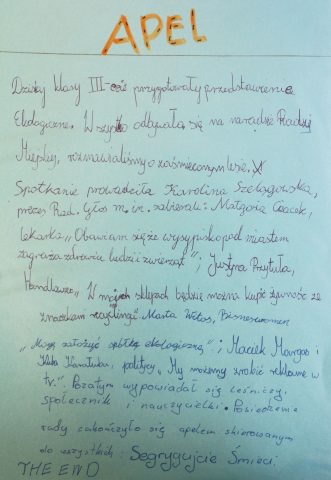 APEL
Dzisiaj klasy III-cie przygotowały przedstawienie
Ekologiczne. Wszystko odbywało się na naradzie Radzie
Miejskiej, rozmawialiśmy o zaśmieconym lesie.
Spotkanie prowadziła Karolina Szelągowska,
prezes Rad. Głos m.in. zabierali: Małgosia
lekarka „Obawiam się że wysypisko pod miastem
zagraża zdrowiu ludzi i zwierząt"; Justyna Przytuła,
Handlowiec „W moich sklepach będzie można kupić żywność ze
znaczkami recyclingu". Marta Włos, Biznesswomen
„Mogę założyć spółkę ekologiczną"; Maciek i
Kuba politycy „My możemy zrobić reklamę w
TV." Pozatym wypowiadał się leśniczy,
społecznik i nauczycielki. Posiedzenie
rady zakończyło się apelem skierowanym
do wszystkich: Segregujcie Śmieci.
THE END